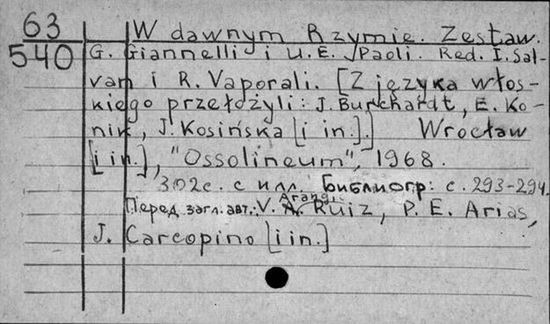 63
540
W dawnym Rzymie. Zestaw.
G. Giannelli i U. E. Paoli. Red. I. Sal-
vani i R. Vaporali. [Z języka włos-
kiego przełożyli: J. Burchardt, E. Ko-
nik, J. Kosińska [i in.].] Wrocław
[i in.], "Ossolineum", 1968.
302с. с илл. Библиогр: с. 293-294.
Перед загл. авт.: V. Arangi Ruiz, P. E. Arias,
J. Carcopino [i in.]